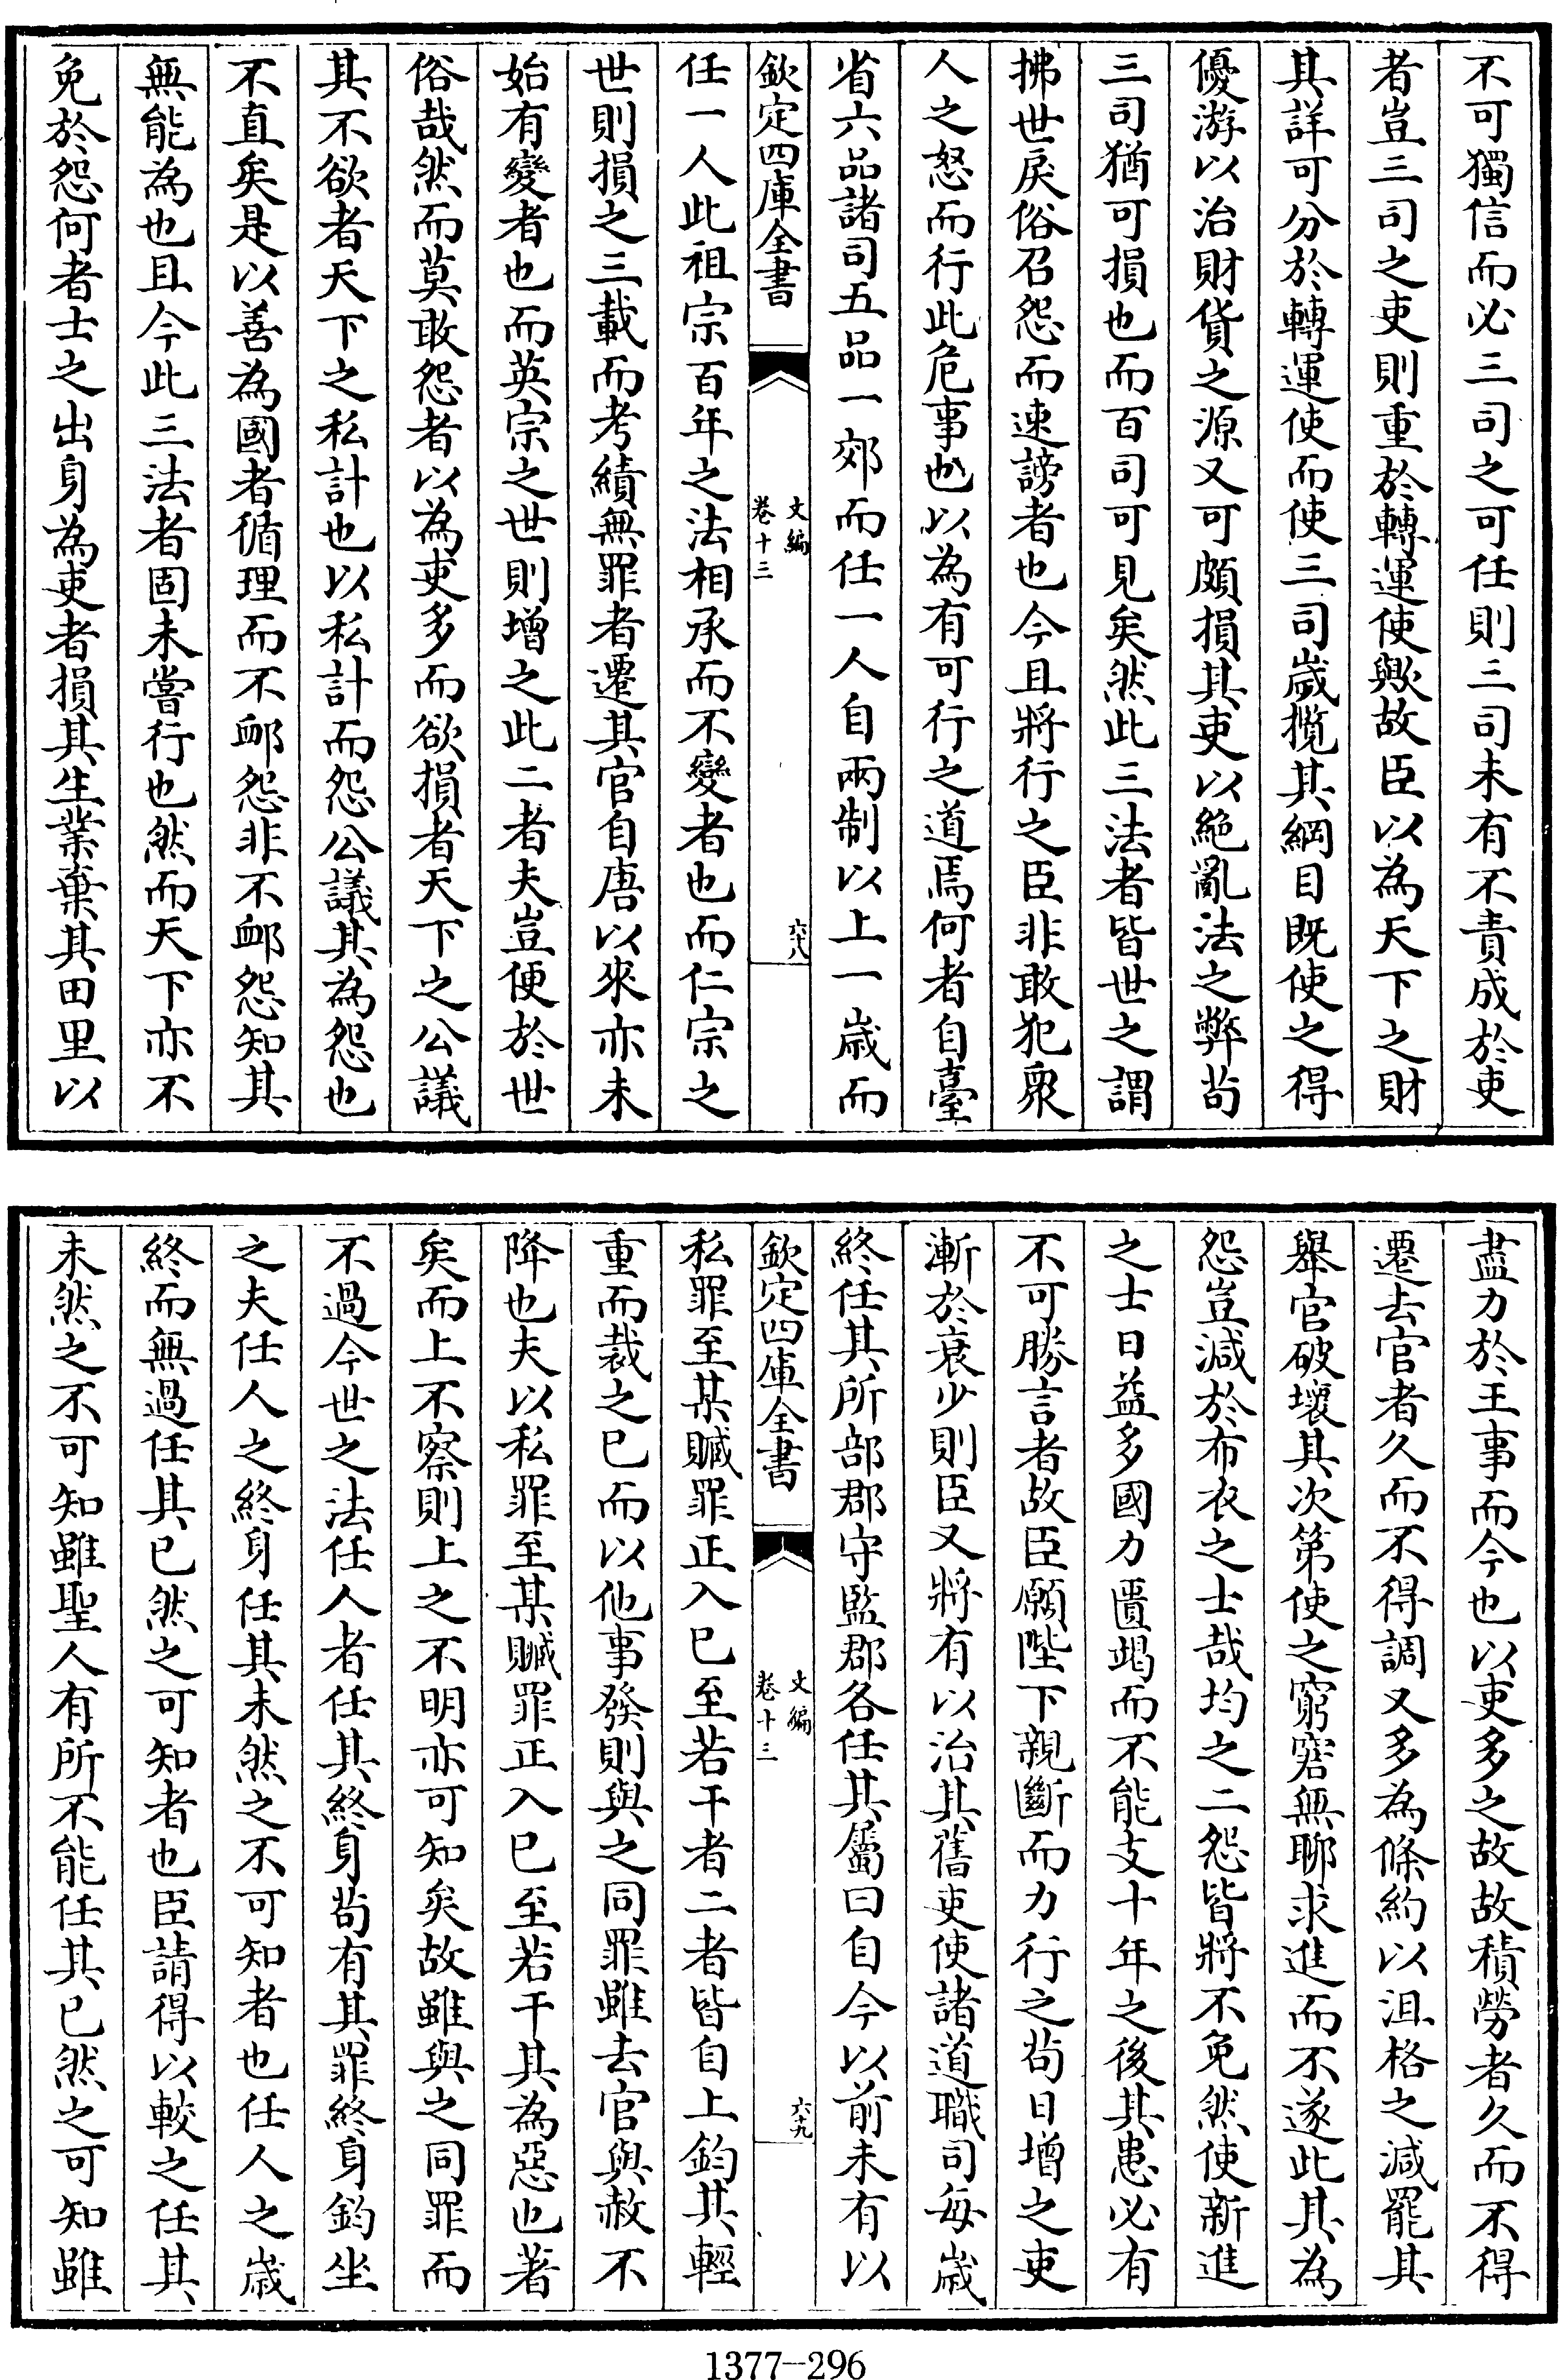 不可獨信而必三司之可任則三司未有不責成於吏
者豈三司之吏則重於轉運使歟故臣以為天下之財
其詳可分於轉運使而使三司歲攬其綱目既使之得
優游以治財貨之源又可頗損其吏以絕亂法之弊苟
三司猶可損也而百司可見矣然此三法者皆世之謂
拂世戾俗召怨而速謗者也今且將行之臣非敢犯眾
人之怒而行此危事也以為有可行之道焉何者自臺
省六品諸司五品一郊而任一人自兩制以上一歲而
欽定四庫全書
文編
卷十三
六十八
任一人此祖宗百年之法相承而不變者也而仁宗之
世則損之三載而考績無罪者遷其官自唐以來亦未
始有變者也而英宗之世則增之此二者夫豈便於世
俗哉然而莫敢怨者以為吏多而欲損者天下之公議
其不欲者天下之私計也以私計而怨公議其為怨也
不直矣是以善為國者循理而不卹怨非不卹怨知其
無能為也且今此三法者固未嘗行也然而天下亦不
免於怨何者士之出身為吏者損其生業棄其田里以
盡力於王事而今也以吏多之故故積勞者久而不得
遷去官者久而不得調又多為條約以沮格之減罷其
舉官破壞其次第使之窮窘無聊求進而不遂此其為
怨豈減於布衣之士哉均之二怨皆將不免然使新進
之士日益多國力匱竭而不能支十年之後其患必有
不可勝言者故臣願陛下親斷而力行之苟日增之吏
漸於衰少則臣又將有以治其舊吏使諸道職司每歲
終任其所部郡守監郡各任其屬曰自今以前未有以
欽定四庫全書
文編
卷十三
六十九
私罪至某贓罪正入已至若干者二者皆自上鈞其輕
重而裁之已而以他事發則與之同罪雖去官與赦不
降也夫以私罪至某贓罪正入已至若干其為惡也著
矣而上不察則上之不明亦可知矣故雖與之同罪而
不過今世之法任人者任其終身苟有其罪終身鈞坐
之夫任人之終身任其未然之不可知者也任人之歲
終而無過任其已然之可知者也臣請得以較之任其
未然之不可知雖聖人有所不能任其已然之可知雖
1377—296